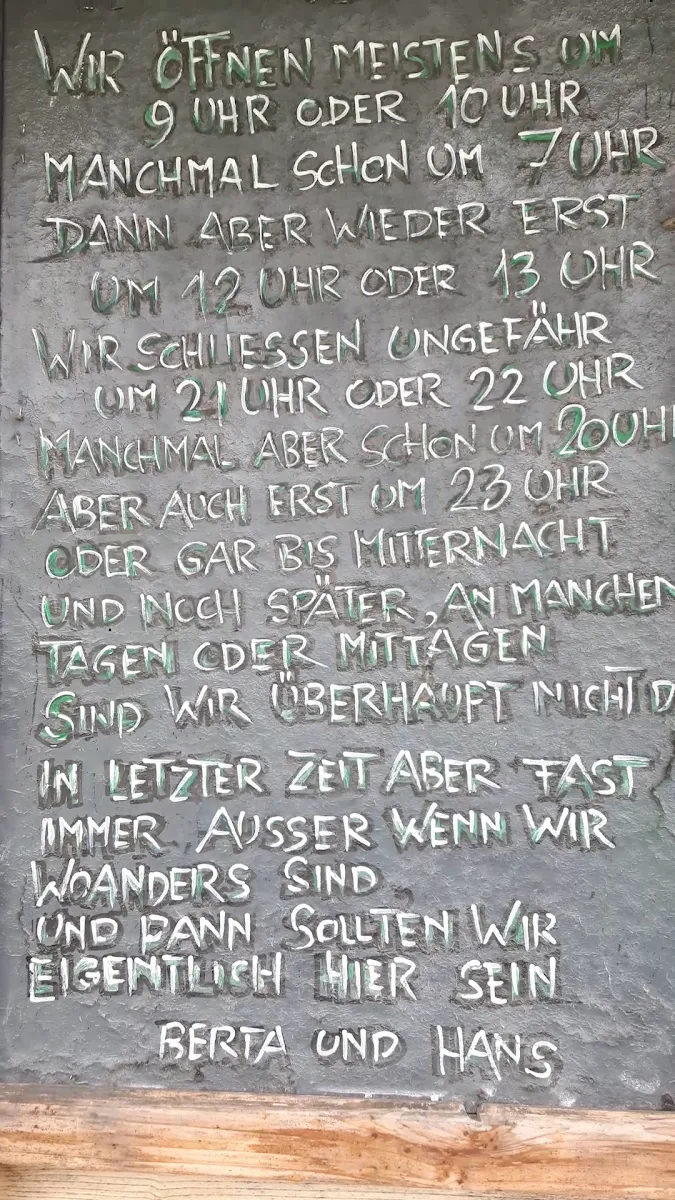 WIR ÖFFNEN MEISTENS UM
9 UHR ODER 10 UHR
MANCHMAL SCHON UM 7 UHR
DANN ABER WIEDER ERST
UM 12 UHR ODER 13 UHR
WIR SCHLIESSEN UNGEFÄHR
UM 21 UHR ODER 22 UHR
MANCHMAL ABER SCHON UM 20 UHR
ABER AUCH ERST UM 23 UHR
ODER GAR BIS MITTERNACHT
UND NOCH SPÄTER, AN MANCHEN
TAGEN ODER MITTAGEN
SIND WIR ÜBERHAUFT NICHT D
IN LETZTER ZEIT ABER FAST
IMMER AUSSER WENN WIR
WOANDERS SIND
UND DANN SOLLTEN WIR
EIGENTLICH HIER SEIN
BERTA UND HANS